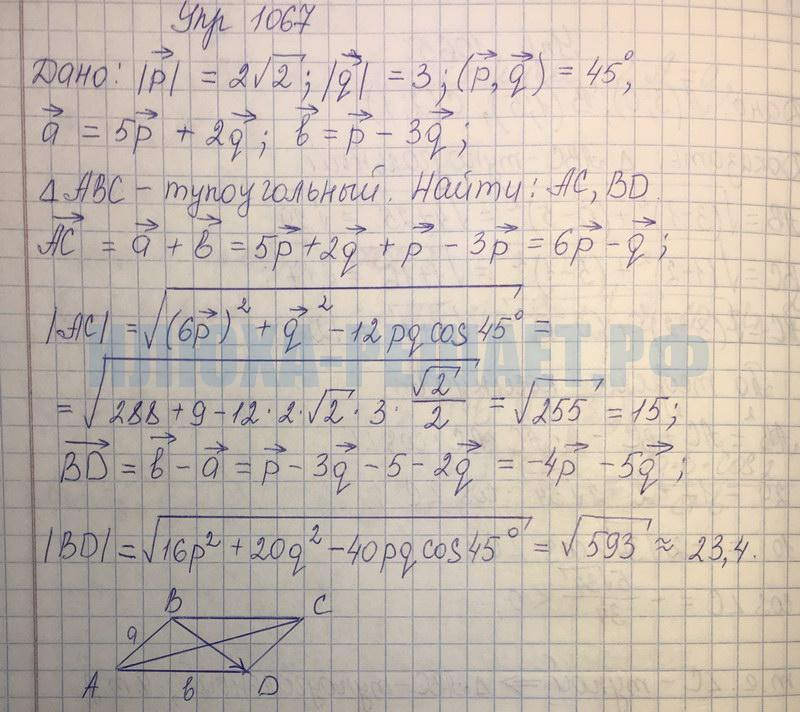 Упр 1067
Дано: |p⃗| = 2√2; |q⃗| = 3; (p⃗, q⃗) = 45°,
a⃗ = 5p⃗ + 2q⃗; b⃗ = p⃗ - 3q⃗;
△ABC - тупоугольный. Найти: AC, BD.
AC⃗ = a⃗ + b⃗ = 5p⃗ + 2q⃗ + p⃗ - 3p⃗ = 6p⃗ - q⃗;
|AC| = √((6p⃗)² + q⃗² - 12pq cos 45°) =
ИЛЮХА-РЕШАЕТ.РФ
= √(288 + 9 - 12 · 2 · √2 · 3 · √2/2) = √255 = 15;
BD⃗ = b⃗ - a⃗ = p⃗ - 3q⃗ - 5 - 2q⃗ = -4p⃗ - 5q⃗;
|BD| = √(16p² + 20q² - 40pq cos 45°) = √593 ≈ 23,4.
B C
a
A b D